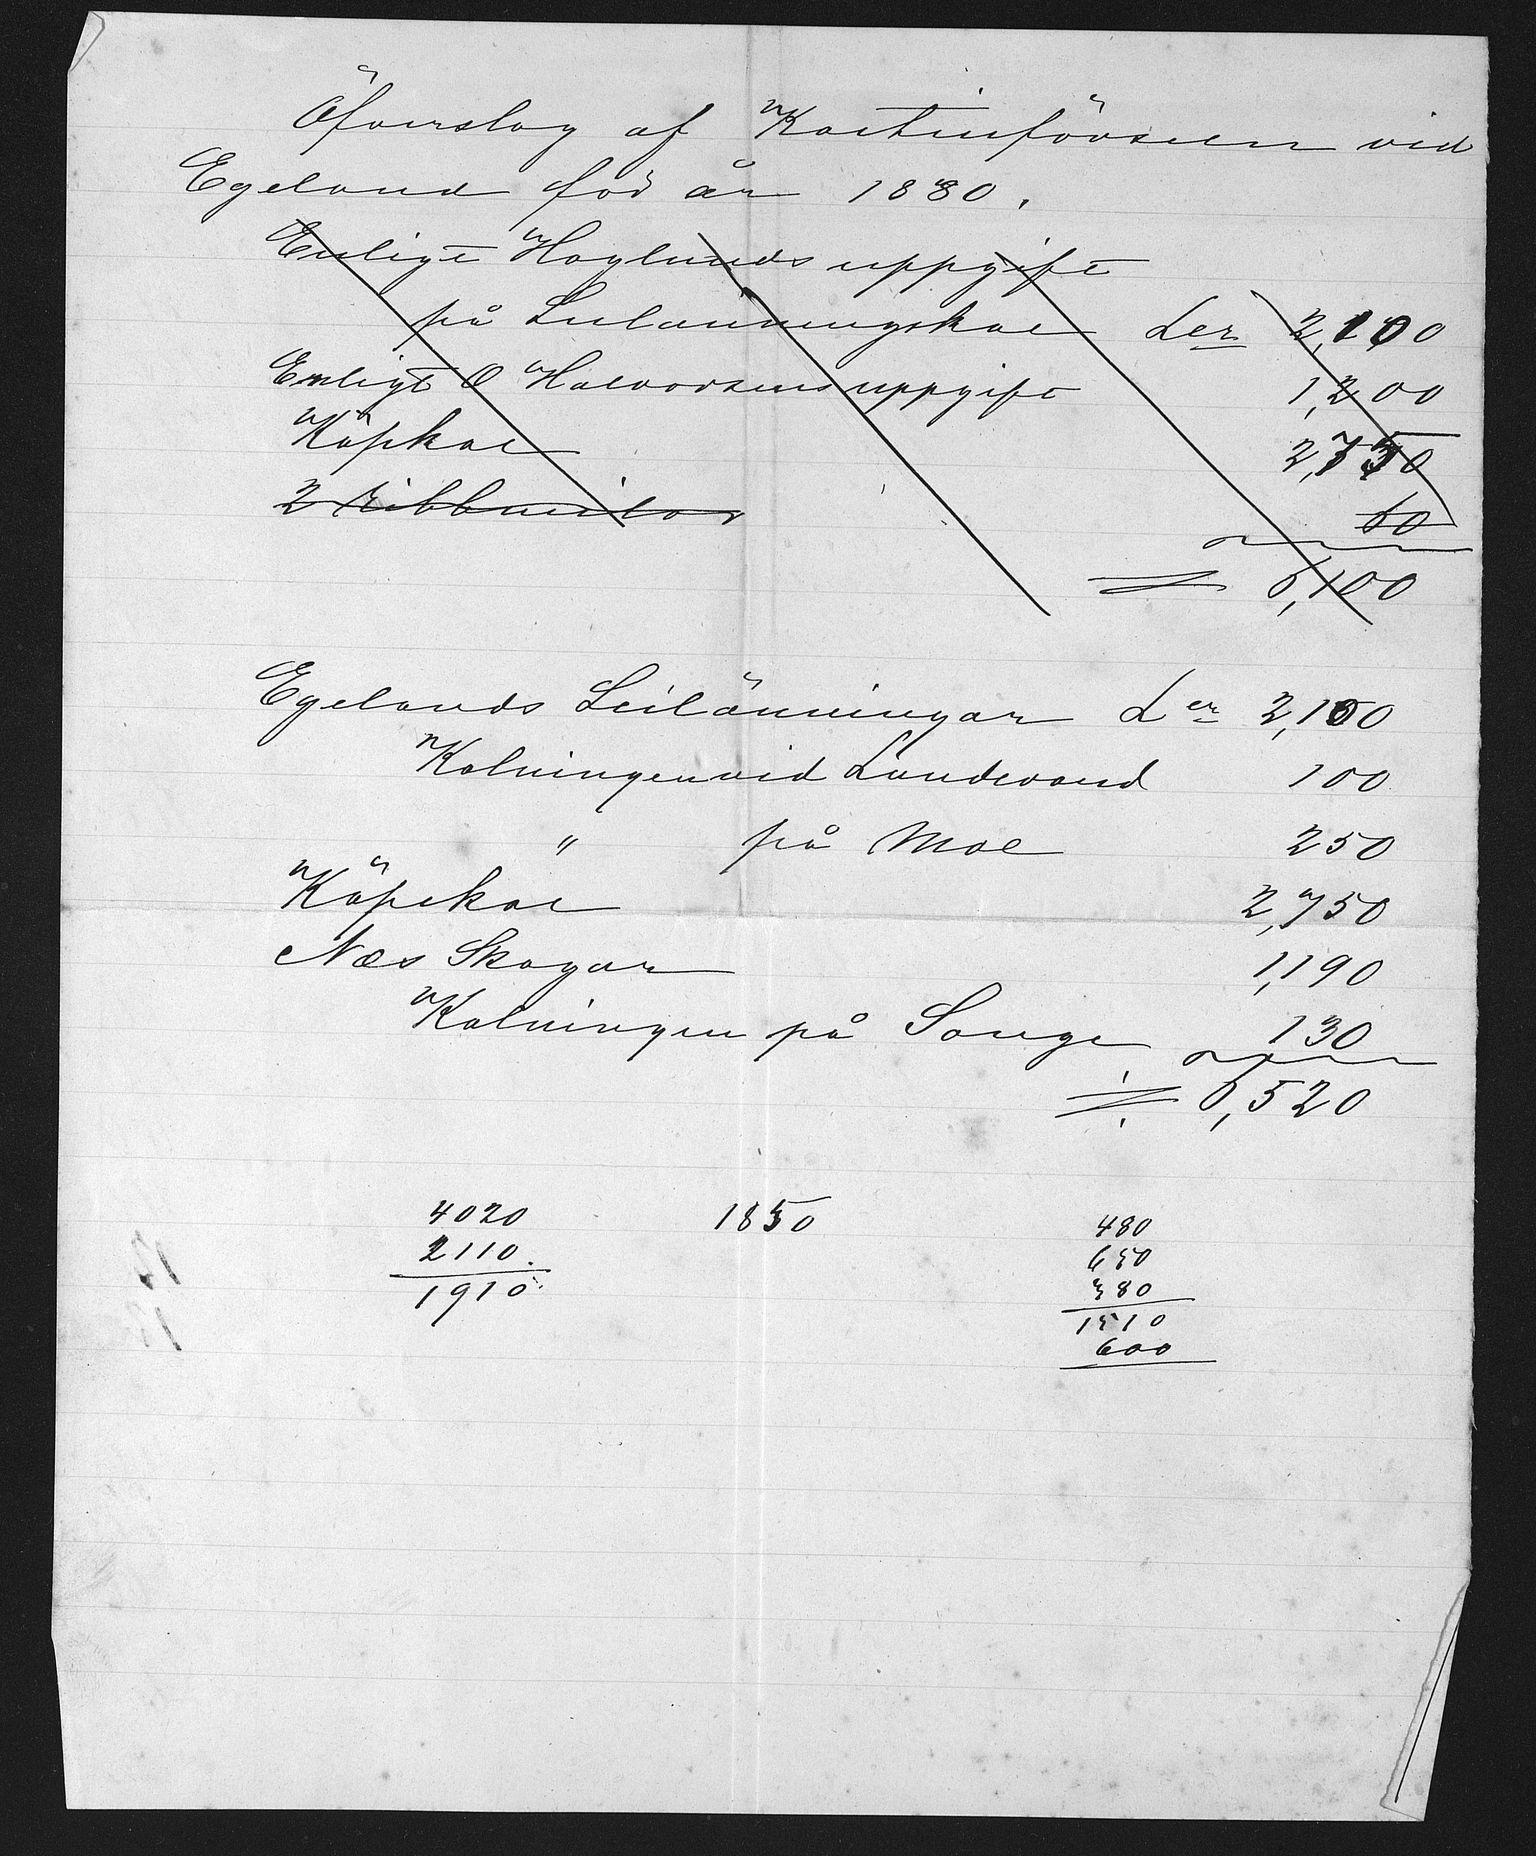 Öfverslag af Kolinförseln vid
Egeland för år 1880.
Enligt Hoglunds uppgift
på Leilänningskol Ler 2,100
Enligt O Halvorsens uppgift 1,200
Köpkol 2,750
2 Ribbmilor 60
6,100
Egelands Leilänningar Ler 2,100
Kolningen vid Lundevand 100
" på Moe 250
Köpekol 2,750
Næs Skogar 1,190
Kolningen på Songe 130
6,520
4020 1850 480
2110 650
1910 380
1510
600